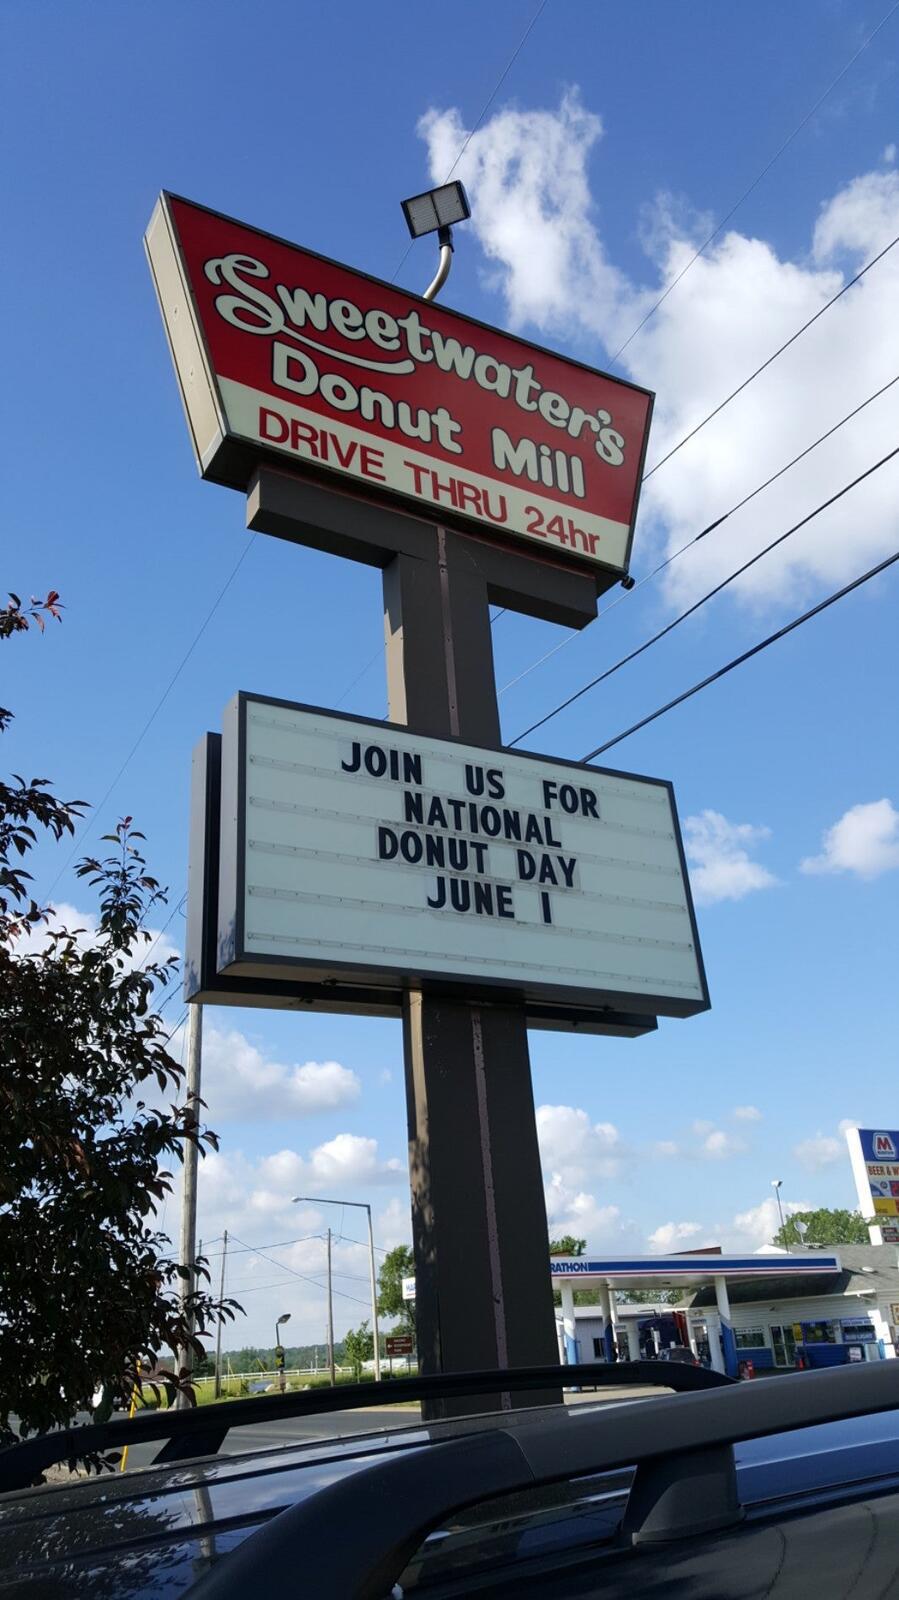 Sweetwater's
Donut Mill
DRIVE THRU 24hr
JOIN US FOR
NATIONAL
DONUT DAY
JUNE 1
M
BEER & W
RATHON